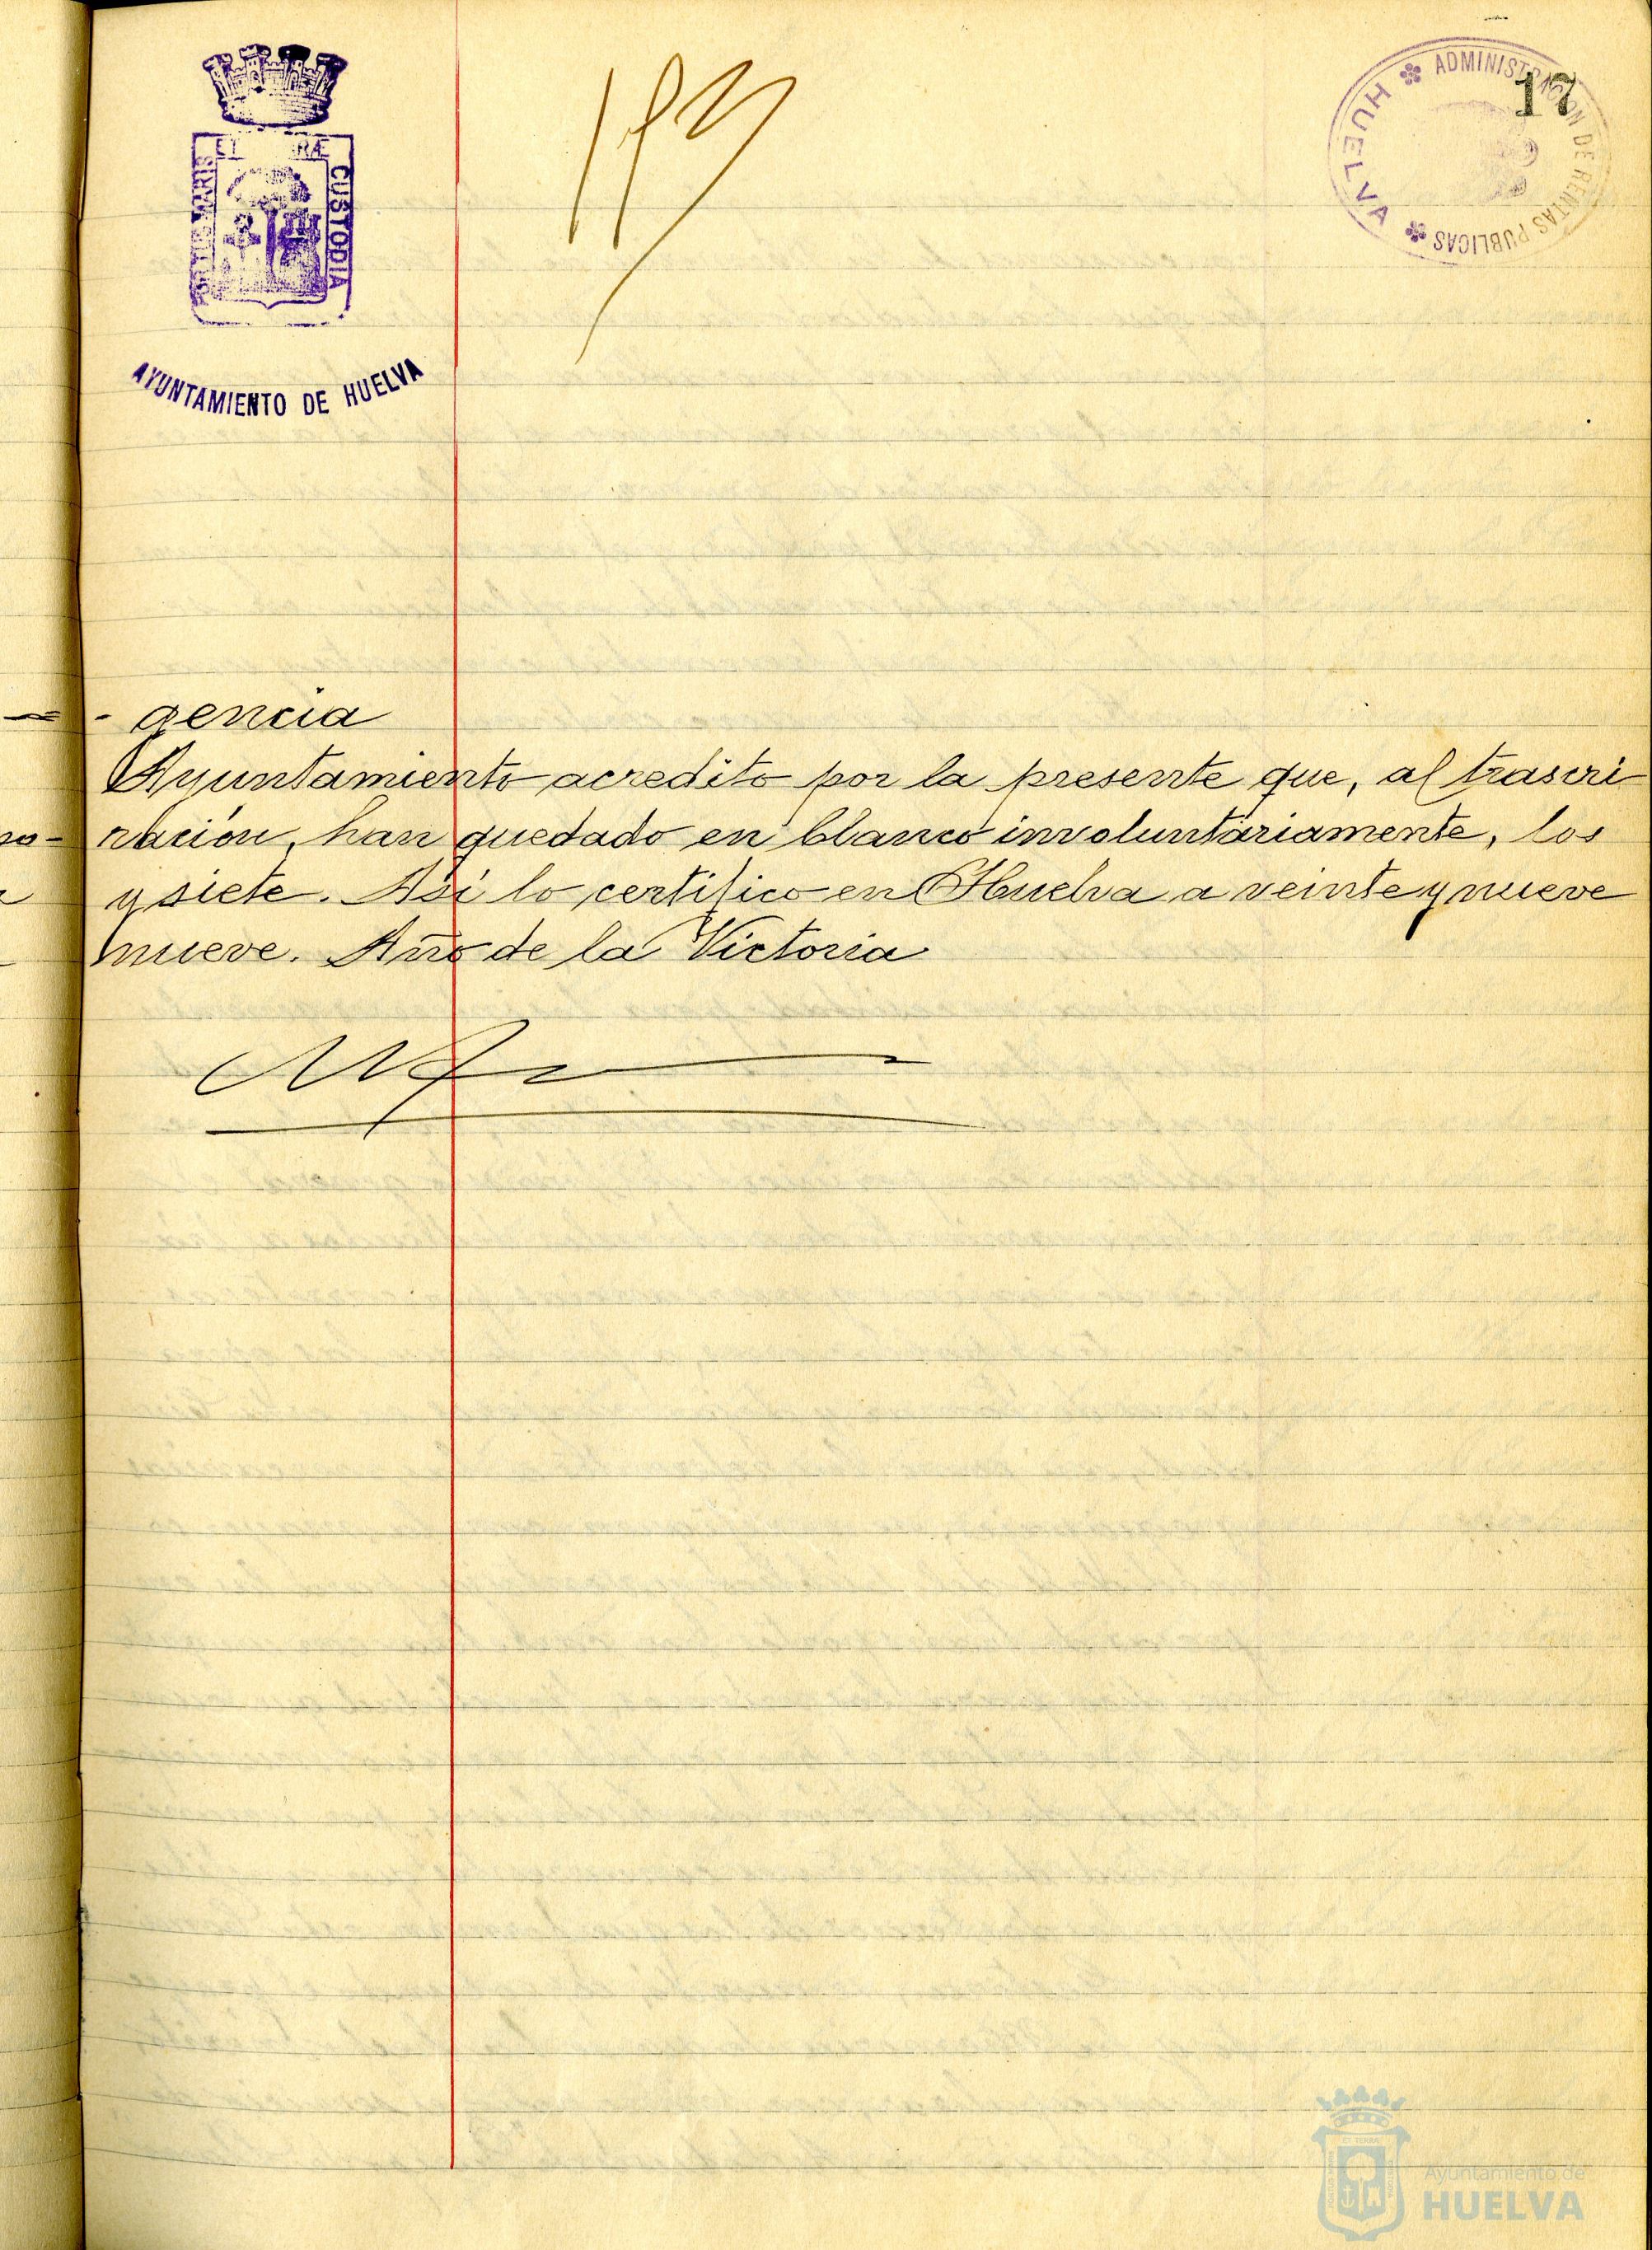 ET TERRÆ
PORTUS MARIS
CUSTODIA
AYUNTAMIENTO DE HUELVA
ADMINISTRACION DE RENTAS PUBLICAS
HUELVA
17
gencia
Ayuntamiento acredito por la presente que, al trascri
no- ración, han quedado en blanco involuntariamente, los
y siete. Así lo certifico en Huelva a veinte y nueve
nueve. Año de la Victoria
Ayuntamiento de
HUELVA